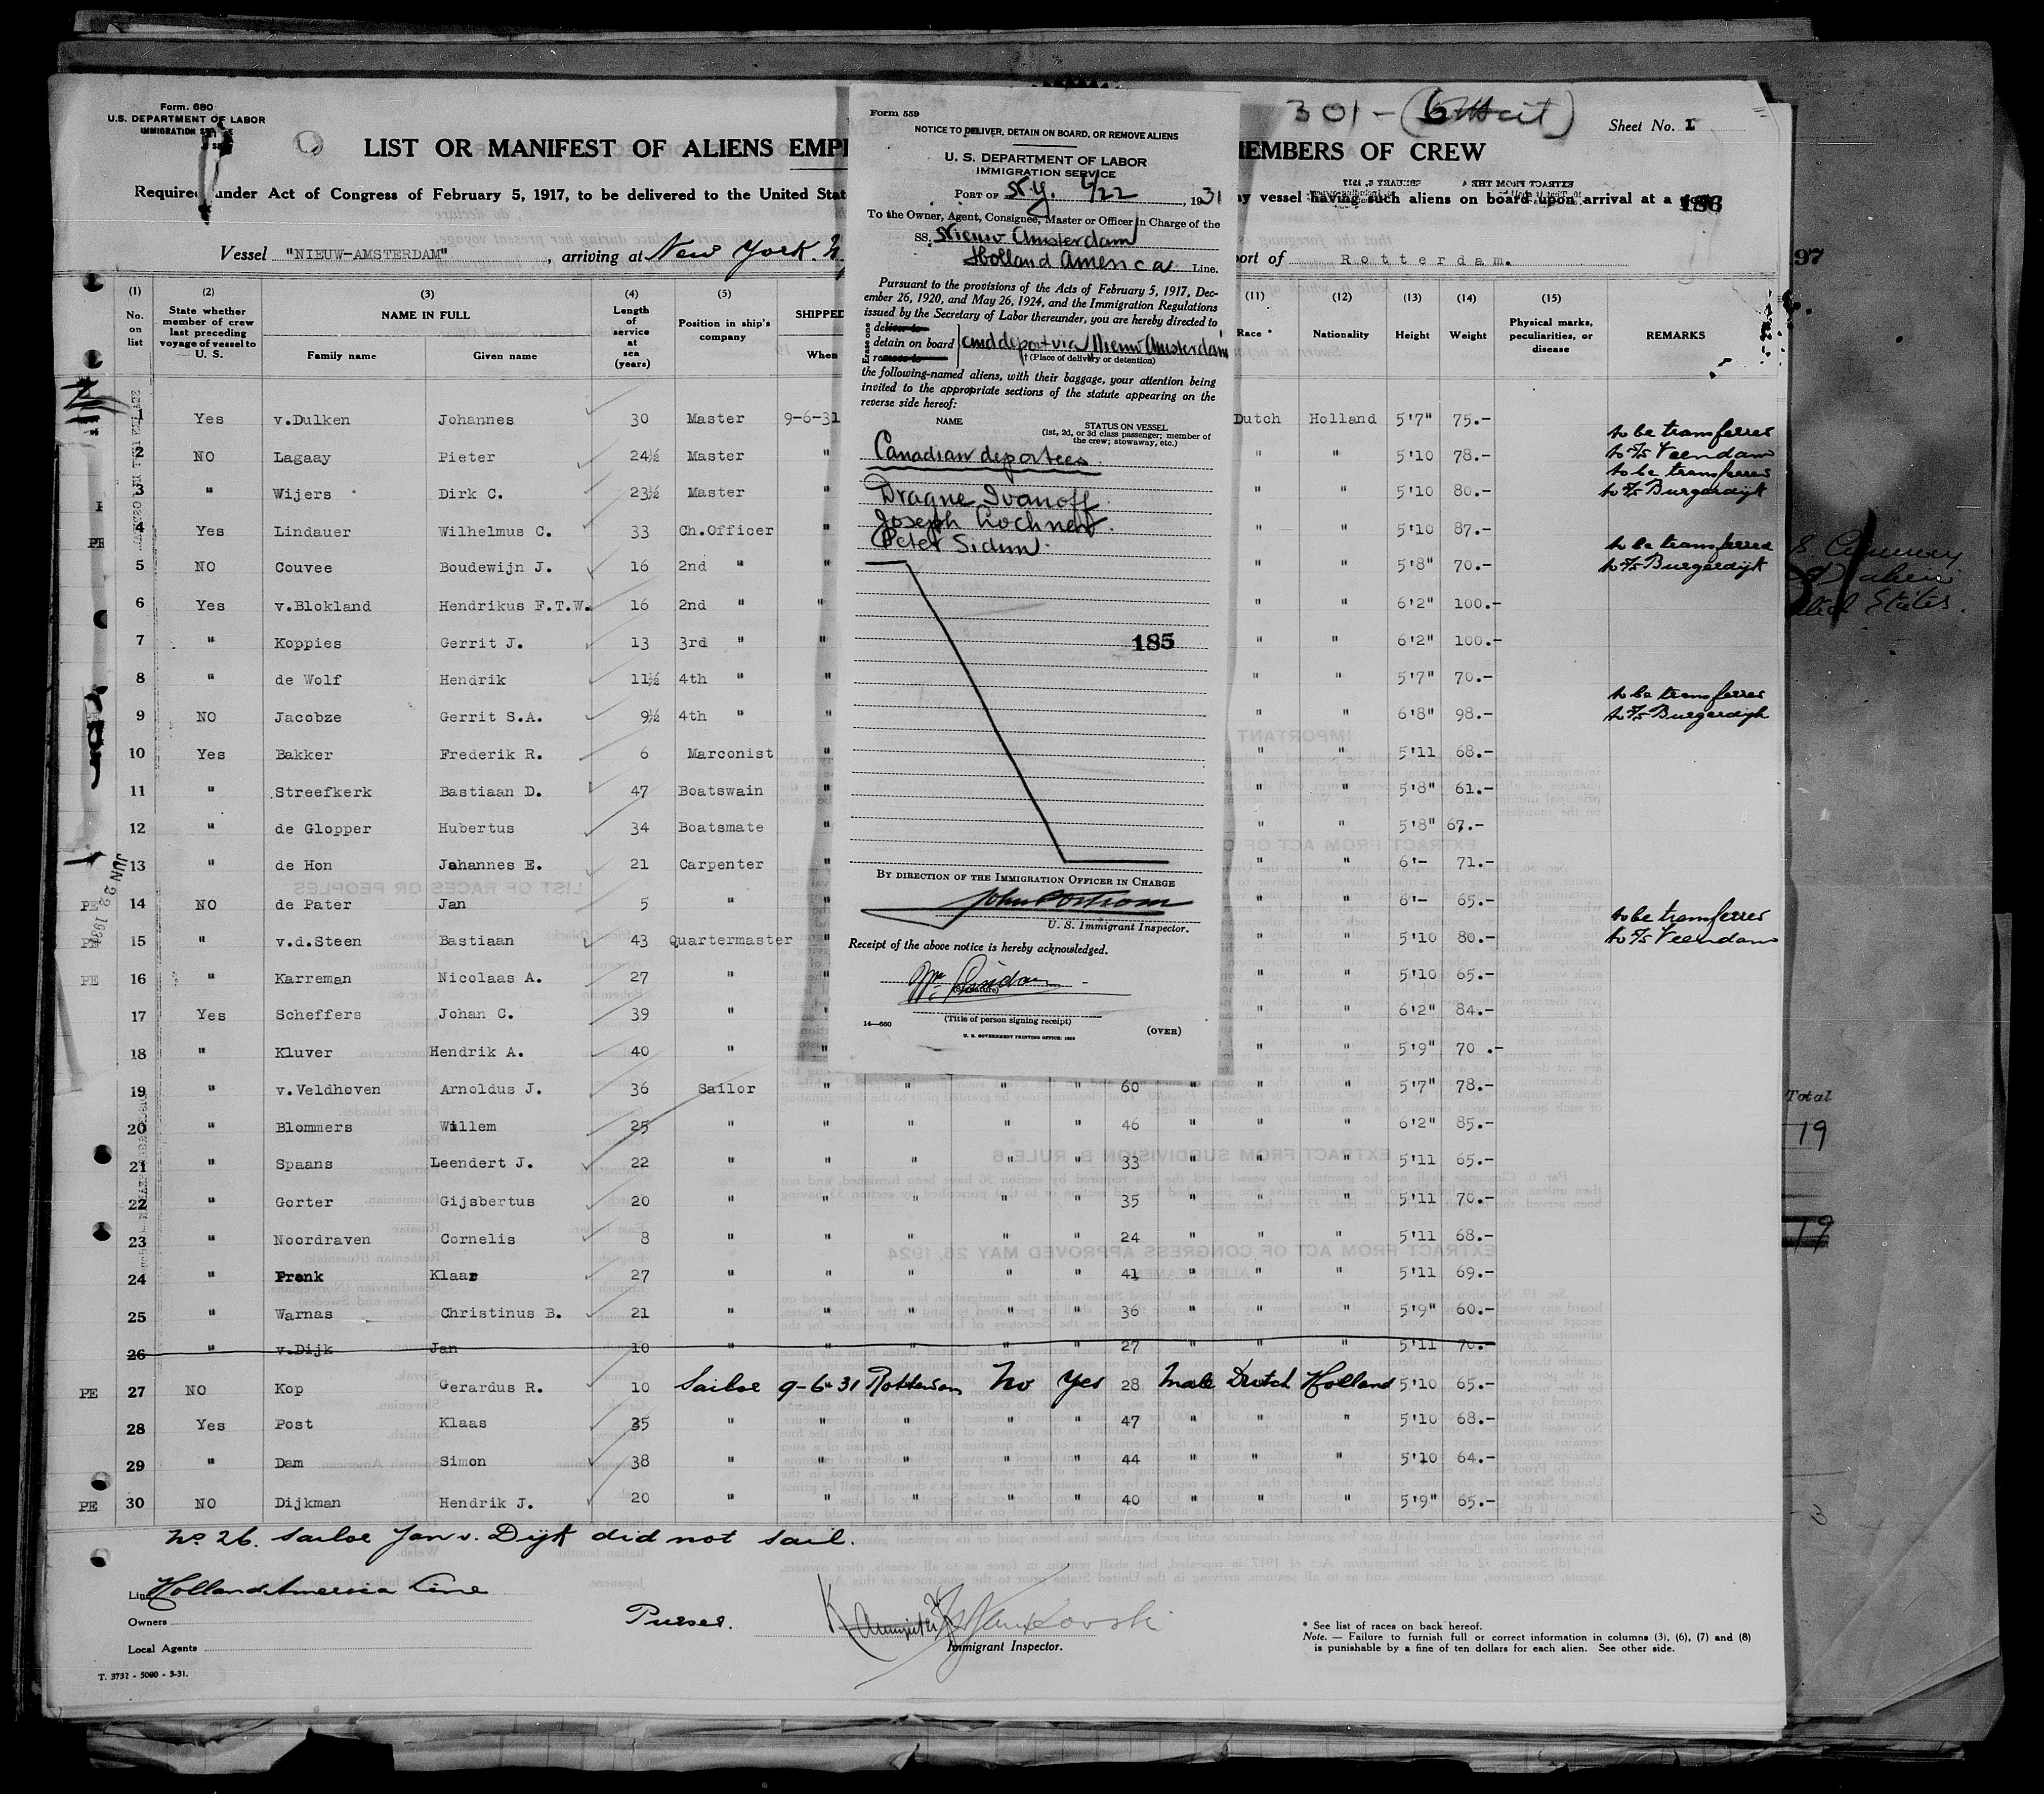 Form. 680
U.S. DEPARTMENT OF LABOR
IMMIGRATION
LIST OR MANIFEST OF ALIENS EMPL
EMBERS OF CREW
301-
Sheet No. I
Required under Act of Congress of February 5, 1917, to be delivered to the United Stat
ny vessel having such aliens on board upon arrival at a
186
Vessel "NIEUW-AMSTERDAM", arriving at New York. N.
port of Rotterdam.
97
(1) (2) (3) (4) (5) (11) (12) (13) (14) (15)
No. on list
State whether member of crew last preceding voyage of vessel to U. S.
NAME IN FULL
Family name
Given name
Length of service at sea (years)
Position in ship's company
SHIPPED
When
Race *
Nationality
Height
Weight
Physical marks, peculiarities, or disease
REMARKS
1 Yes v.Dulken Johannes 30 Master 9-6-31 Dutch Holland 5'7" 75.-
2 NO Lagaay Pieter 24½ Master " " " 5'10 78.- to be transferred to s/s Veendam
3 " Wijers Dirk C. 23½ Master " " " 5'10 80.- to be transferred to s/s Burgerdijk
4 Yes Lindauer Wilhelmus C. 33 Ch.Officer " " " 5'10 87.-
5 NO Couvee Boudewijn J. 16 2nd " " " " 5'8" 70.- to be transferred to s/s Burgerdijk
6 Yes v.Blokland Hendrikus F.T.W. 16 2nd " " " " 6'2" 100.-
7 " Koppies Gerrit J. 13 3rd " " " " 6'2" 100.-
8 " de Wolf Hendrik 11½ 4th " " " " 5'7" 70.-
9 NO Jacobze Gerrit S.A. 9½ 4th " " " " 6'8" 98.- to be transferred to s/s Burgerdijk
10 Yes Bakker Frederik R. 6 Marconist " " " 5'11 68.-
11 " Streefkerk Bastiaan D. 47 Boatswain " " " 5'8" 61.-
12 " de Glopper Hubertus 34 Boatsmate " " " 5'8" 67.-
13 " de Hon Johannes E. 21 Carpenter " " " 6'- 71.-
JUN 22 1931
PE 14 NO de Pater Jan 5 " " " " 6'- 65.-
PE 15 " v.d.Steen Bastiaan 43 Quartermaster " " " 5'10 80.- to be transferred to s/s Veendam
PE 16 " Karreman Nicolaas A. 27 " " " " 5'10 65.-
17 Yes Scheffers Johan C. 39 " " " " 6'2" 84.-
18 " Kluver Hendrik A. 40 " " " " 5'9" 70.-
19 " v.Veldhoven Arnoldus J. 36 Sailor " " " " 60 " " " 5'7" 78.-
20 " Blommers Willem 25 " " " " " 46 " " " 6'2" 85.-
21 " Spaans Leendert J. 22 " " " " " 33 " " " 5'11 65.-
22 " Gorter Gijsbertus 20 " " " " " 35 " " " 5'11 70.-
23 " Noordraven Cornelis 8 " " " " " 24 " " " 5'11 68.-
24 " Pronk Klaar 27 " " " " " 41 " " " 5'11 69.-
25 " Warnas Christinus B. 21 " " " " " 36 " " " 5'9" 60.-
26 " v.Dijk Jan 10 " " " " " 27 " " " 5'11 70.-
PE 27 NO Kop Gerardus R. 10 Sailor 9-6-31 Rotterdam No Yes 28 Male Dutch Holland 5'10 65.-
28 Yes Post Klaas 35 " " " " " 47 " " " 5'10 68.-
29 " Dam Simon 38 " " " " " 44 " " " 5'10 64.-
PE 30 NO Dijkman Hendrik J. 20 " " " " " 40 " " " 5'9" 65.-
No 26. Sailor Jan v. Dijk did not sail.
Line Holland America Line
Owners
Local Agents
T. 3732 - 5000 - 3-31.
Purser.
Immigrant Inspector.
* See list of races on back hereof.
Note. — Failure to furnish full or correct information in columns (3), (6), (7) and (8)
is punishable by a fine of ten dollars for each alien. See other side.
Form 559
NOTICE TO DELIVER, DETAIN ON BOARD, OR REMOVE ALIENS
U. S. DEPARTMENT OF LABOR
IMMIGRATION SERVICE
PORT OF N.Y. 6/22, 1931
To the Owner, Agent, Consignee, Master or Officer in Charge of the
SS. Nieuw Amsterdam
Holland America Line.
Pursuant to the provisions of the Acts of February 5, 1917, Dec-
ember 26, 1920, and May 26, 1924, and the Immigration Regulations
issued by the Secretary of Labor thereunder, you are hereby directed to
Erase one
deliver to
detain on board and deport via Nieuw Amsterdam
remove to
† (Place of delivery or detention)
the following-named aliens, with their baggage, your attention being
invited to the appropriate sections of the statute appearing on the
reverse side hereof:
NAME
STATUS ON VESSEL
(1st, 2d, or 3d class passenger; member of
the crew; stowaway, etc.)
Canadian deportees
Dragne Ivanoff
Joseph
Peter Sidun
185
BY DIRECTION OF THE IMMIGRATION OFFICER IN CHARGE
U. S. Immigrant Inspector.
Receipt of the above notice is hereby acknowledged.
(Signature)
(Title of person signing receipt)
14—660
U. S. GOVERNMENT PRINTING OFFICE
(OVER)
States.
Total
19
19